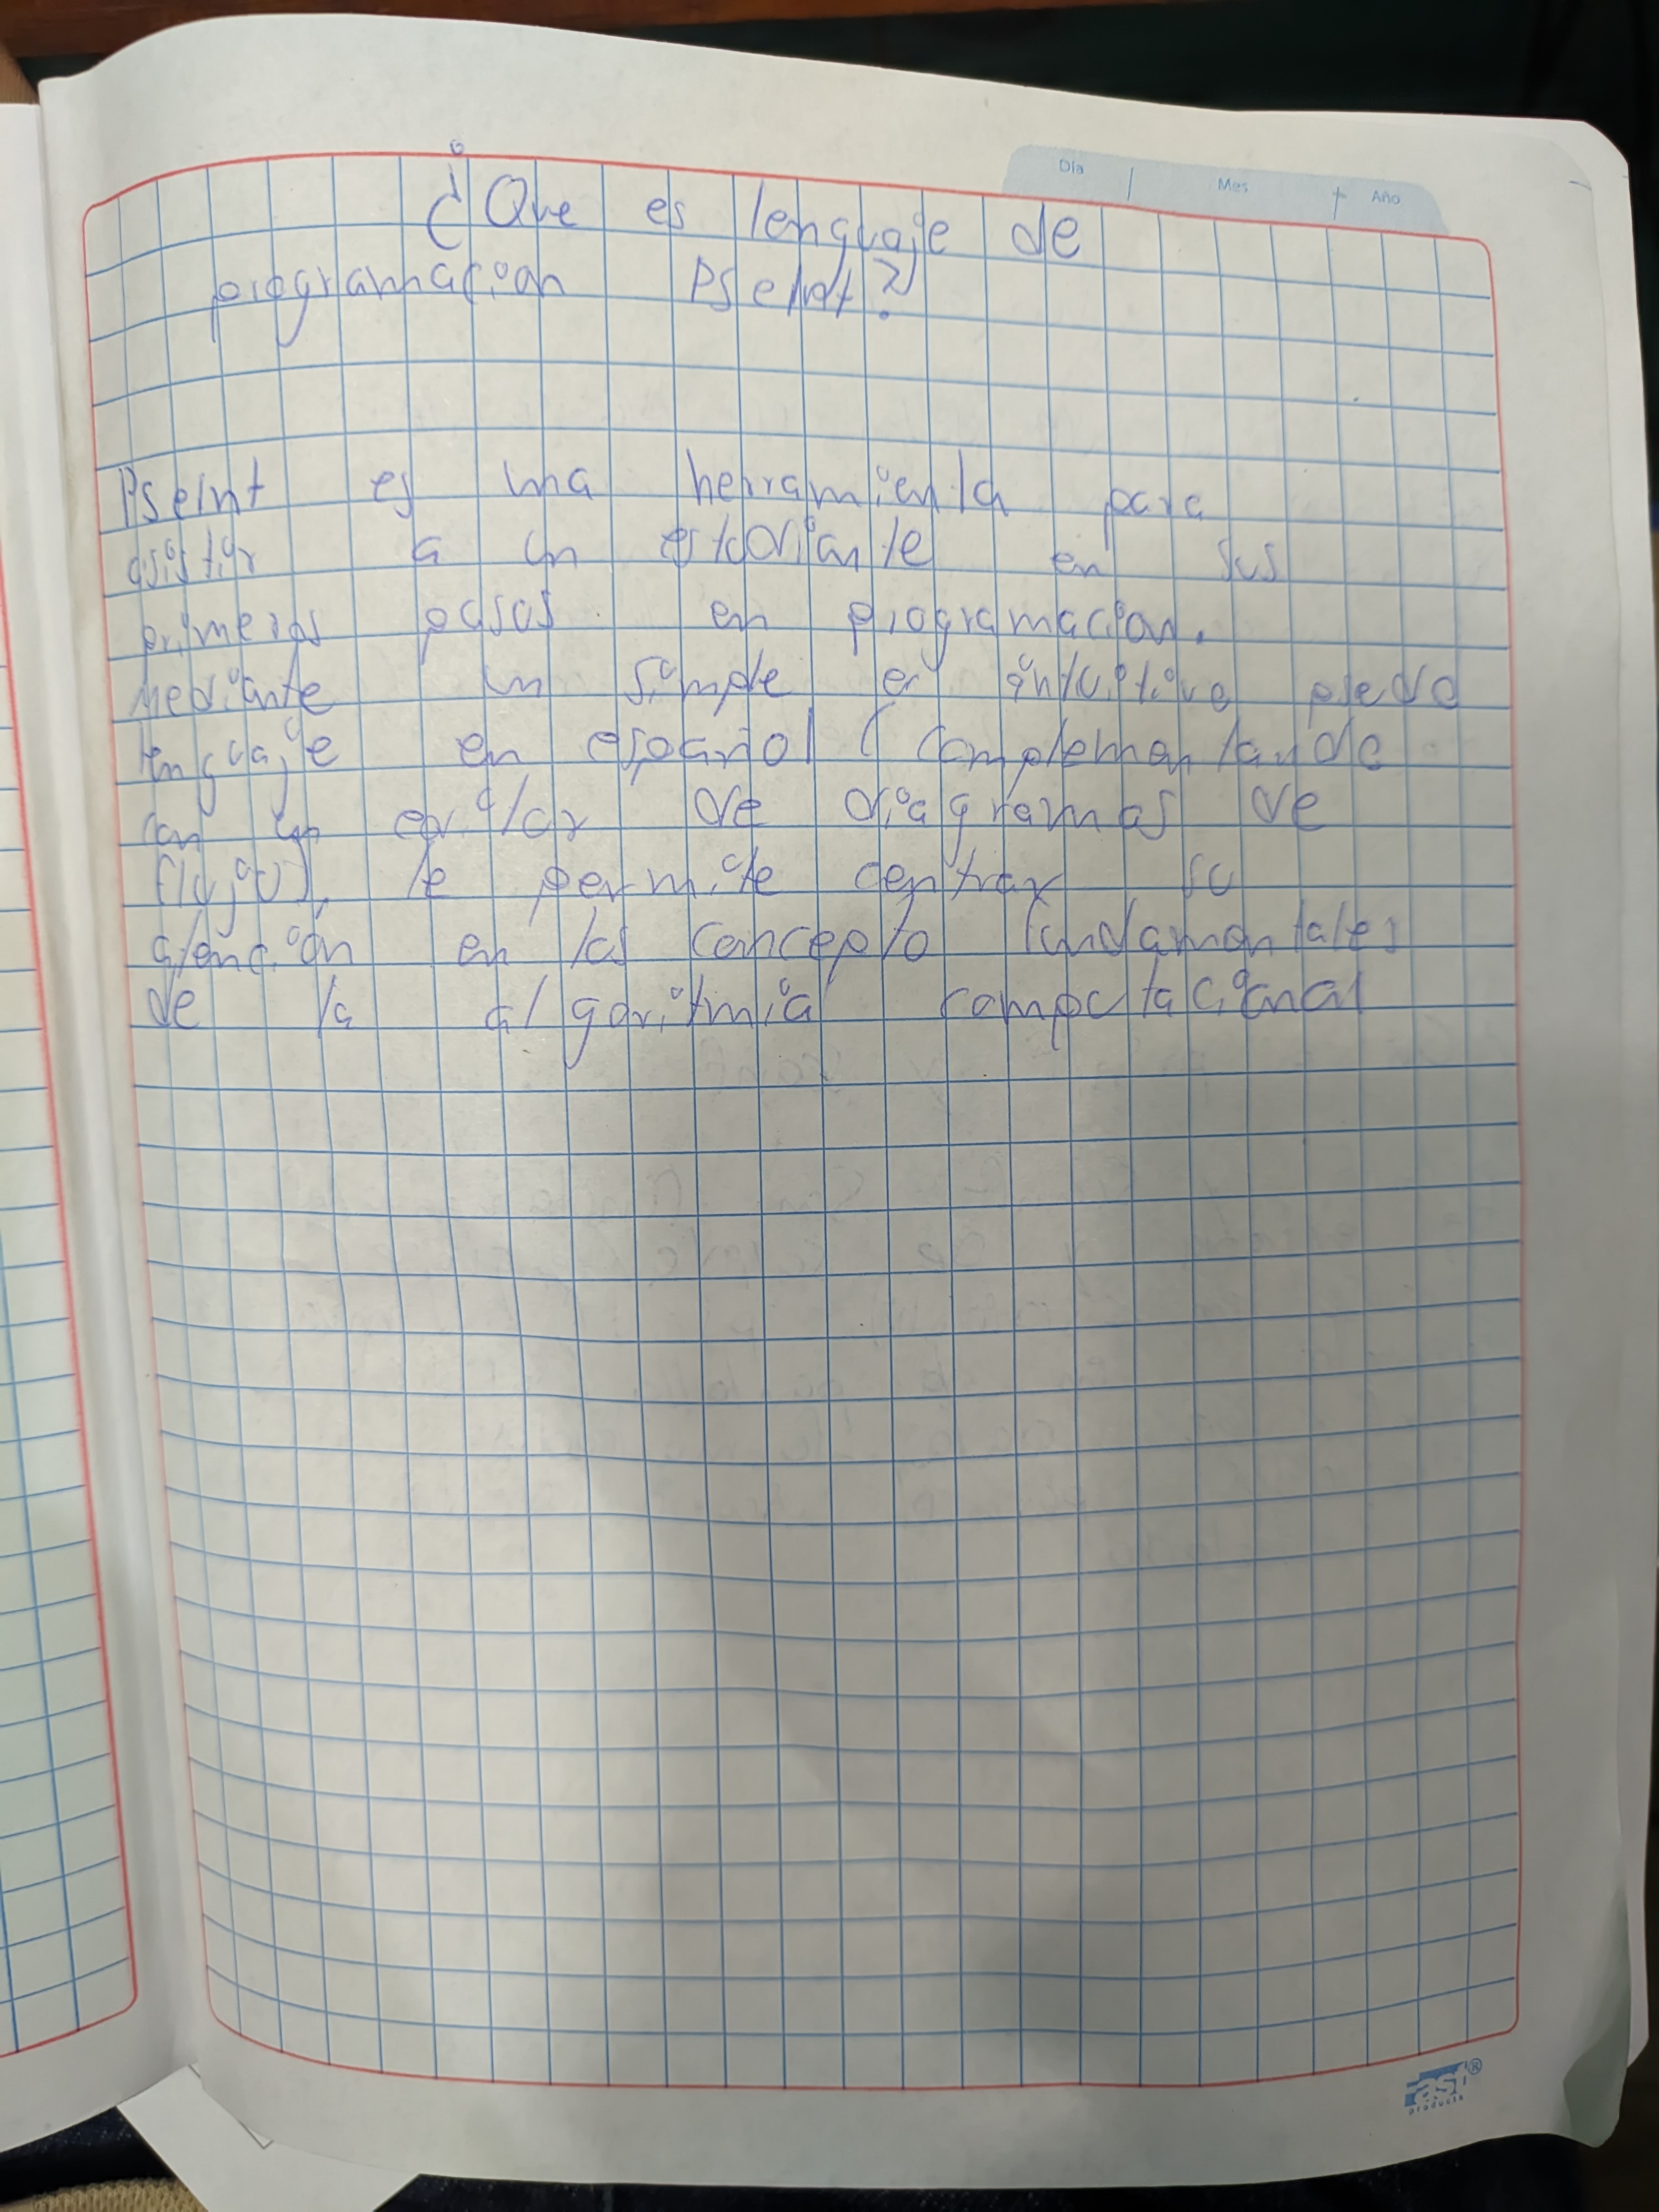 Día Mes Año
¿Que es lenguaje de
programacion PseInt?
PseInt es una herramienta para
asistir a un estudiante en sus
primeros pasos en programacion.
Mediante un simple e intuitivo pseudo
lenguaje en español (complementando
con un editor de diagramas de
flujo), le permite centrar su
atención en los concepto fundamentales
de la algoritmia computacional